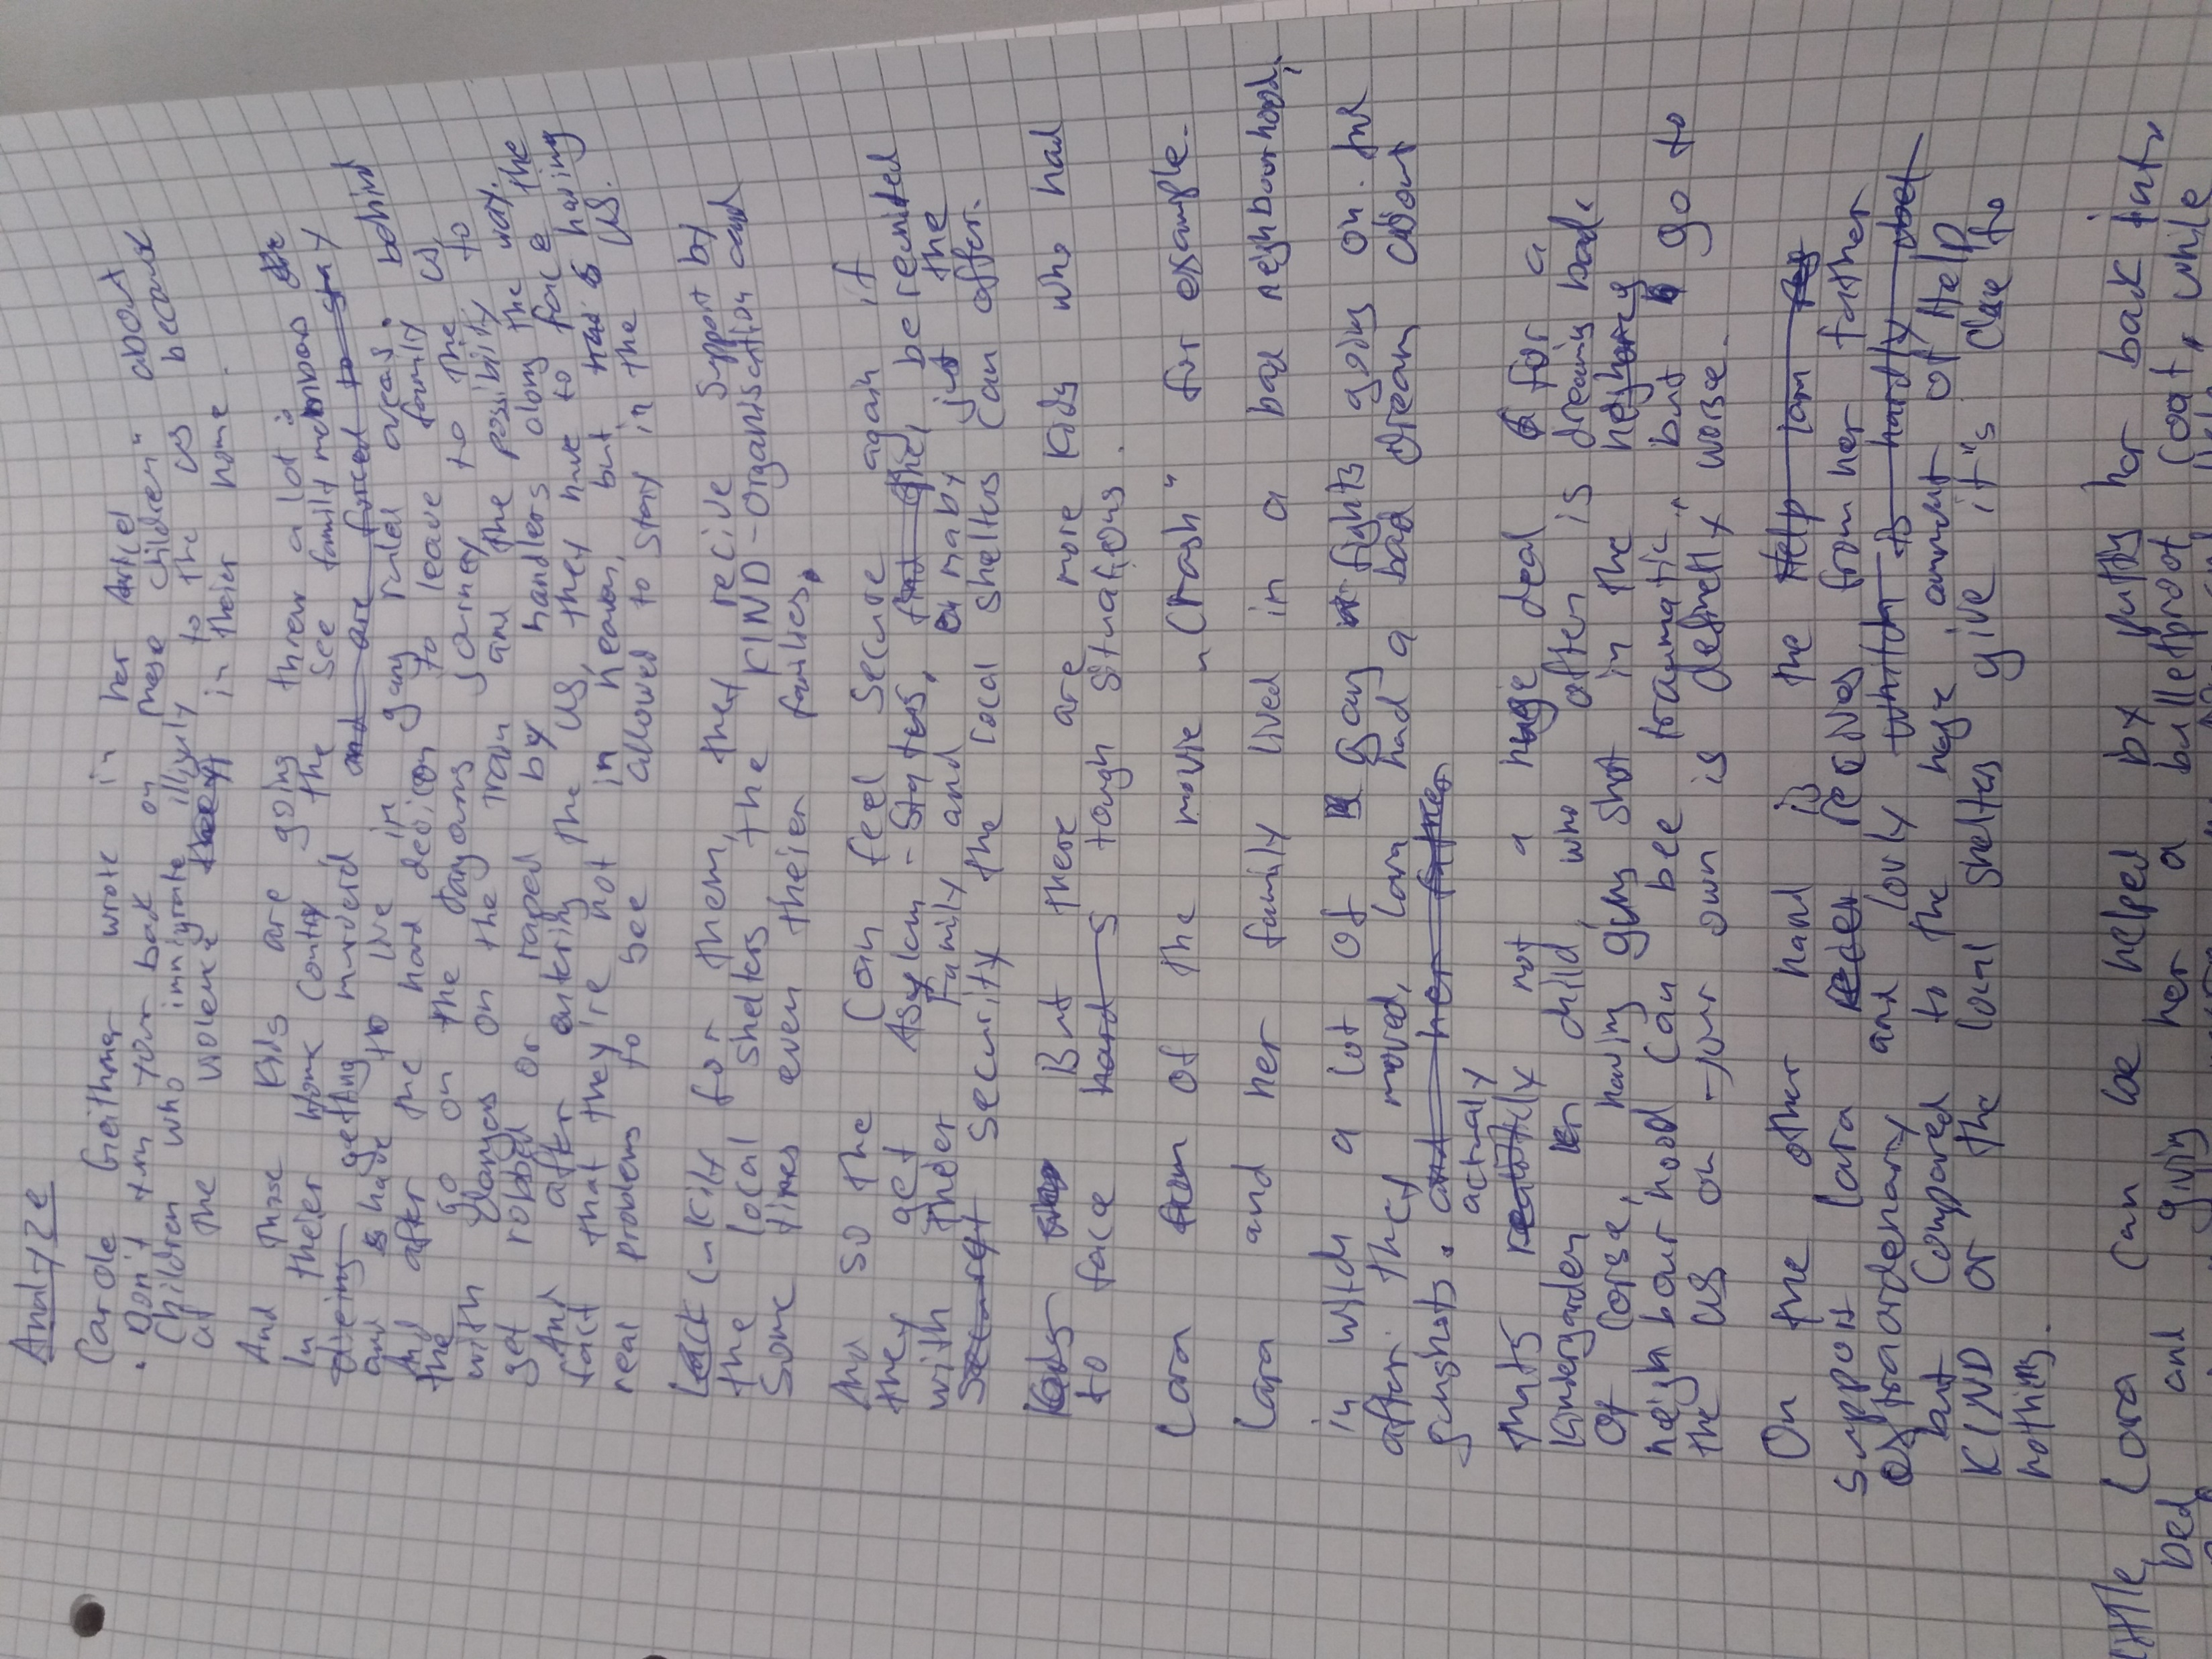 Analyze
Carole Geithner wrote in her Articel about
"Don't turn your back on these children" about
Children who immigrate illigaly to the US because
of the violence in theier home.
And those Kids are going threw a lot:
In theier Home Contry the see family members
dieing getting murderd and are forced to stay
and have to live in gang ruled areas.
And after the hard decicon to leave family behind
the go on the dangarous Journey to the US,
with dangers on the train and the possibility to
get robbed or raped by handlers along the way.
And after entering the US, they have to face the
fact that they're not in Heaven, but have having
real problems to see allowed to stay in the US.
Luckily for them, they recive support by
the local shelters, the KIND-Organisation and
some times even theier families.
And so the can feel secure again if
they get Asylum-Status, be reunited
with theier Family and or mayby just the
Security the local shelters can offer.
But there are more Kids who had
to face hard tough situations.
Lara from of the movie "Crash" for example.
Lara and her family lived in a bad neighbourhood,
in witch a lot of gang fights going on. And
after they moved, Lara had a bad dream about
gunshots. and her father
actually
Thats not a huge deal for a
Kindergarden child, who often is dreaming bad.
Of Corse, having guns shot in the
neighbourhood can be traumatic, but go to
the US on your own is definetly worse.
On the other hand is the Help Lara
support Lara recives from her father
extraordenary and lovly
but Compared to the huge ammount of Help
KIND or the local shelter give it's close to
nothing.
Little Lara can be helped by putting her back into
bed and giving her a bulletproof Coat, while